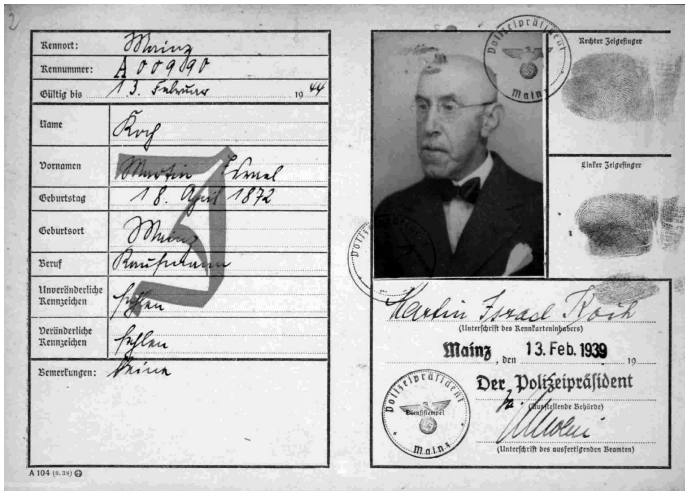 2
Kennort: Mainz
Kennummer: A 00990
Gültig bis 13. Februar 19 44
Name Koch
Vornamen Martin Israel
Geburtstag 18. April 1872
Geburtsort Mainz
Beruf Kaufmann
Unveränderliche Kennzeichen fehlen
Veränderliche Kennzeichen fehlen
Bemerkungen: Keine
J
A 104 (9. 38)
Polizeipräsident
Mainz
Rechter Zeigefinger
Linker Zeigefinger
Polizeipräsident
Martin Israel Koch
(Unterschrift des Kennkarteninhabers)
Mainz, den 13. Feb. 1939 19
Der Polizeipräsident
(Ausstellende Behörde)
(Unterschrift des ausfertigenden Beamten)
Polizeipräsident
Dienststempel
Mainz